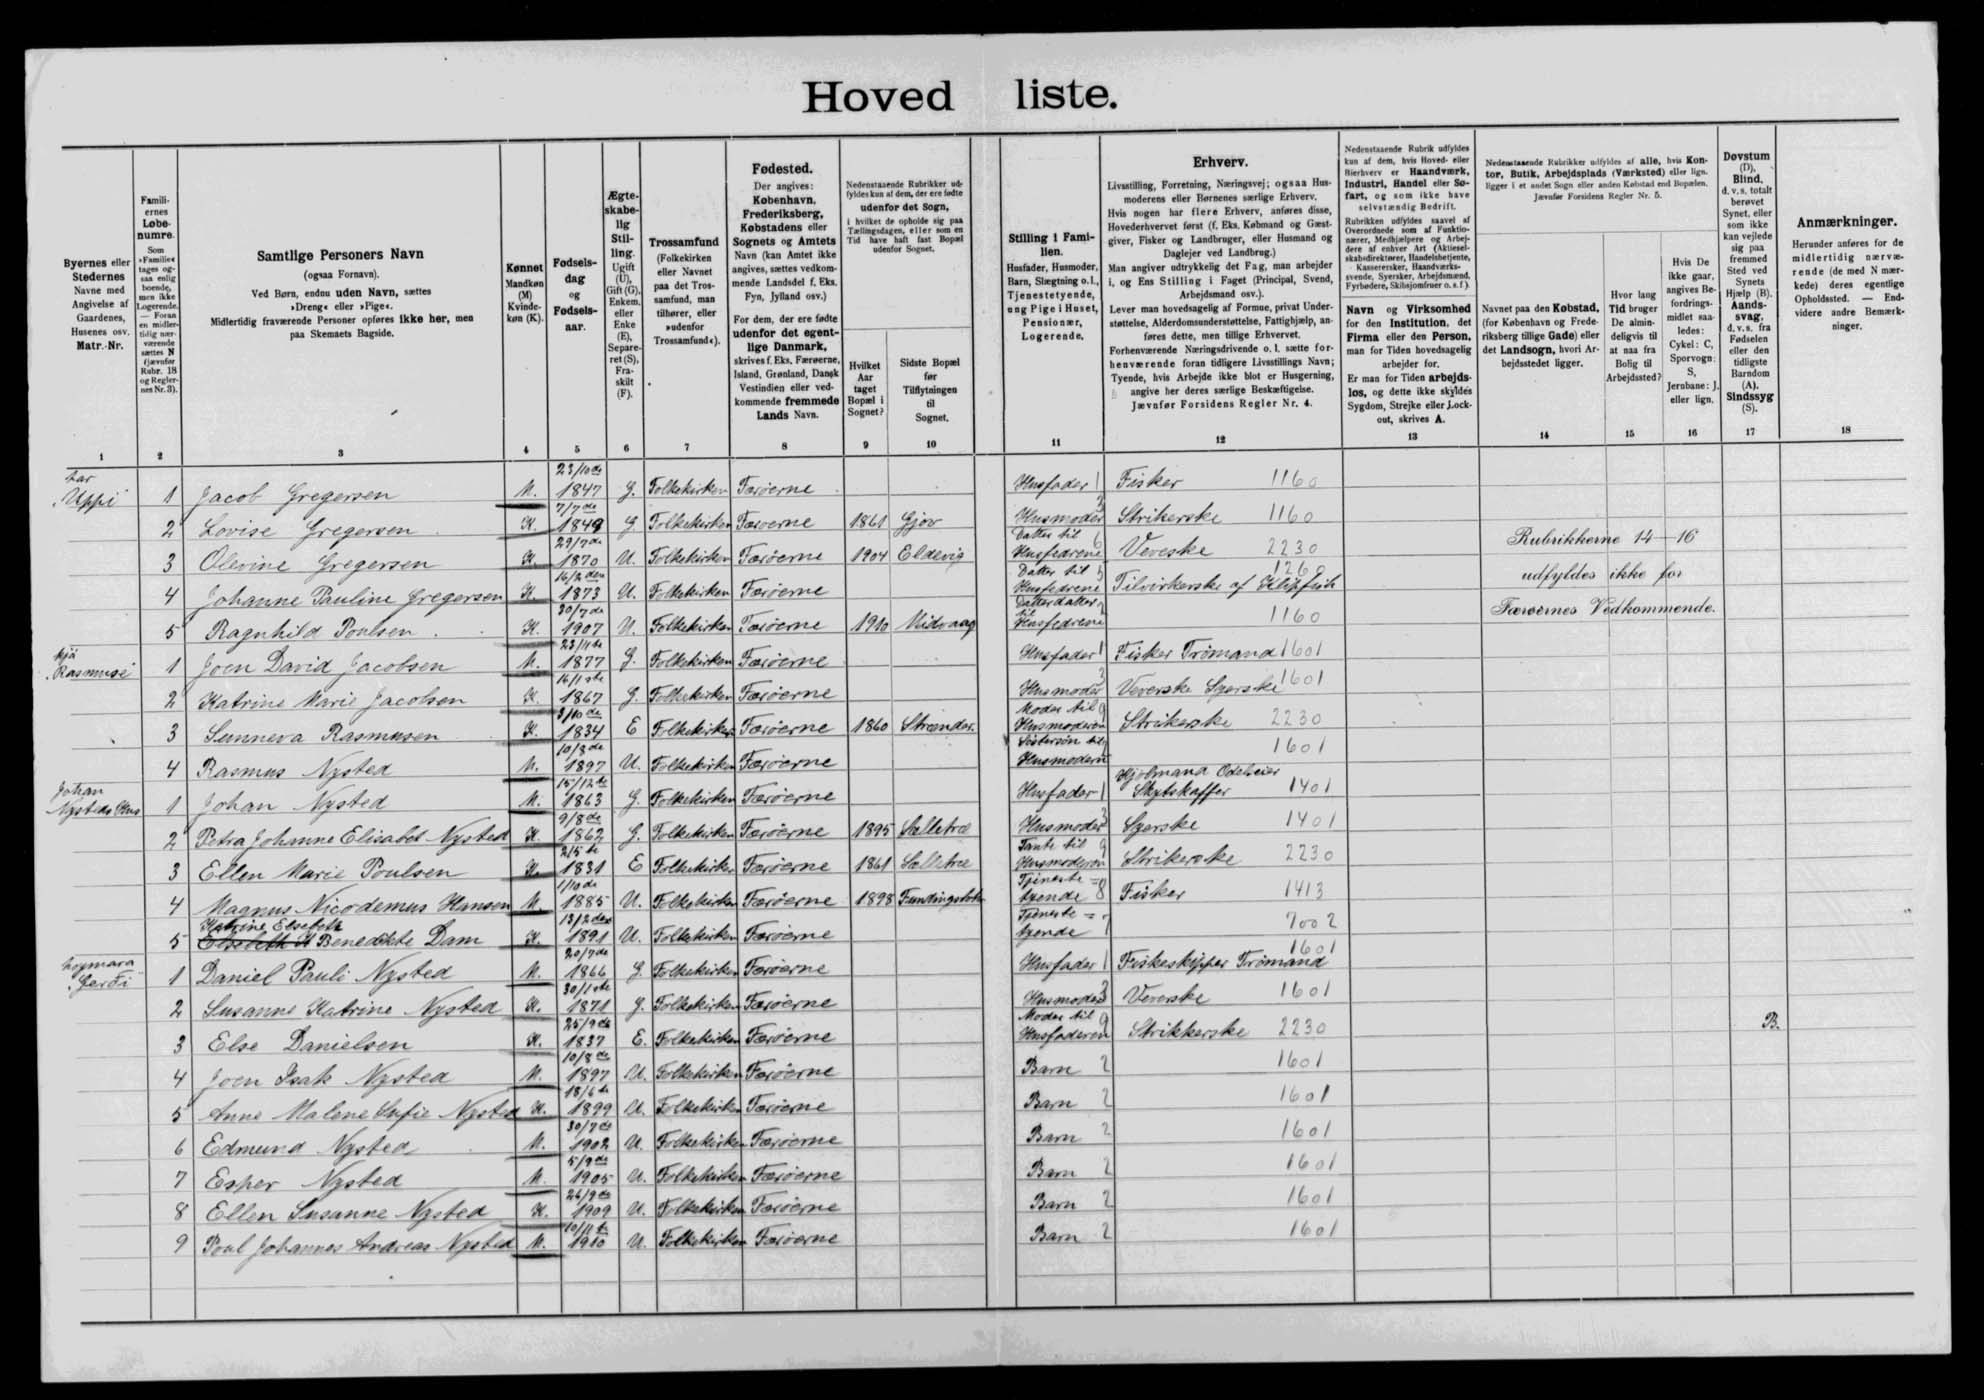 Hoved liste.
Byernes eller Stedernes Navne med Angivelse af Gaardenes, Husenes osv. Matr.-Nr.
Familiernes Løbenumre.
Som »Familie« tages ogsaa enlig boende, men ikke Logerende. — Foran en midlertidig nærværende sættes N (jævnfør Rubr. 18 og Reglernes Nr. 3).
Samtlige Personers Navn
(ogsaa Fornavn).
Ved Børn, endnu uden Navn, sættes
»Dreng« eller »Pige«.
Midlertidig fraværende Personer opføres ikke her, men
paa Skemaets Bagside.
Kønnet
Mandkøn (M) Kvindekøn (K).
Fødselsdag og Fødselsaar.
Ægteskabelig Stilling.
Ugift (U), Gift (G), Enkem. eller Enke (E), Separeret (S), Fraskilt (F).
Trossamfund
(Folkekirken eller Navnet paa det Trossamfund, man tilhører, eller »udenfor Trossamfund«).
Fødested.
Der angives: København, Frederiksberg, Købstadens eller Sognets og Amtets Navn (kan Amtet ikke angives, sættes vedkommende Landsdel f. Eks. Fyn, Jylland osv.)
For dem, der ere fødte udenfor det egentlige Danmark, skrives f. Eks. Færøerne, Island, Grønland, Dansk Vestindien eller vedkommende fremmede Lands Navn.
Nedenstaaende Rubrikker udfyldes kun af dem, der ere fødte udenfor det Sogn, i hvilket de opholde sig paa Tællingsdagen, eller som en Tid have haft fast Bopæl udenfor Sognet.
Hvilket Aar taget Bopæl i Sognet?
Sidste Bopæl før Tilflytningen til Sognet.
Stilling i Familien.
Husfader, Husmoder, Barn, Slægtning o.l., Tjenestetyende, ung Pige i Huset, Pensionær, Logerende.
Erhverv.
Livsstilling, Forretning, Næringsvej; ogsaa Husmoderens eller Børnenes særlige Erhverv.
Hvis nogen har flere Erhverv, anføres disse, Hovederhvervet først (f. Eks. Købmand og Gæstgiver, Fisker og Landbruger, eller Husmand og Daglejer ved Landbrug.)
Man angiver udtrykkelig det Fag, man arbejder i, og Ens Stilling i Faget (Principal, Svend, Arbejdsmand osv.).
Lever man hovedsagelig af Formue, privat Understøttelse, Alderdomsunderstøttelse, Fattighjælp, anføres dette, men tillige Erhvervet.
Forhenværende Næringsdrivende o. l. sætte forhenværende foran tidligere Livsstillings Navn; Tyende, hvis Arbejde ikke blot er Husgerning, angive her deres særlige Beskæftigelse.
Jævnfør Forsidens Regler Nr. 4.
Nedenstaaende Rubrik udfyldes kun af dem, hvis Hoved- eller Bierhverv er Haandværk, Industri, Handel eller Søfart, og som ikke have selvstændig Bedrift.
Rubrikken udfyldes saavel af Overordnede som af Funktionærer, Medhjælpere og Arbejdere af enhver Art (Aktieselskabsdirektører, Handelsbetjente, Kassserersker, Haandværkssvende, Syersker, Arbejdsmænd, Fyrbødere, Skibsjomfruer o. s. f.).
Navn og Virksomhed for den Institution, det Firma eller den Person, man for Tiden hovedsagelig arbejder for.
Er man for Tiden arbejdsløs, og dette ikke skyldes Sygdom, Strejke eller Lockout, skrives A.
Nedenstaaende Rubrikker udfyldes af alle, hvis Kontor, Butik, Arbejdsplads (Værksted) eller lign. ligger i et andet Sogn eller anden Købstad end Bopælen. Jævnfør Forsidens Regler Nr. 5.
Navnet paa den Købstad, (for København og Frederiksberg tillige Gade) eller det Landsogn, hvori Arbejdsstedet ligger.
Hvor lang Tid bruger De almindeligvis til at naa fra Bolig til Arbejdssted?
Hvis De ikke gaar, angives Befordringsmidlet saaledes: Cykel: C, Sporvogn: S, Jernbane: J, eller lign.
Døvstum (D), Blind, d. v. s. totalt berøvet Synet, eller som ikke kan vejlede sig paa fremmed Sted ved Synets Hjælp (B). Aandssvag, d. v. s. fra Fødselen eller den tidligste Barndom (A). Sindssyg (S).
Anmærkninger.
Herunder anføres for de midlertidig nærværende (de med N mærkede) deres egentlige Opholdssted. — Endvidere andre Bemærkninger.
1 2 3 4 5 6 7 8 9 10 11 12 13 14 15 16 17 18
har Uppi 1 Jacob Gregersen M. 23/10de 1847 G. Folkekirken Færøerne Husfader 1 Fisker 1160
2 Lovise Gregersen K. 7/7de 1849 G. Folkekirken Færøerne 1861 Gjov Husmoder 3 Strikerske 1160
3 Olevine Gregersen K. 29/7de 1870 U. Folkekirken Færøerne 1904 Eldevig Datter til Husfædrene 6 Veveske 2230
Rubrikkerne 14—16
4 Johanne Pauline Gregersen K. 16/2den 1873 U. Folkekirken Færøerne Datter til Husfædrene 5 Tilvirkerske af Klipfisk
udfyldes ikke for
5 Ragnhild Poulsen K. 30/7de 1907 U. Folkekirken Færøerne 1910 Midvaag Datterdatter til Husfædrene 1160
Færøernes Vedkommende.
Rasmusi 1 Joen David Jacobsen M. 23/11te 1877 G. Folkekirken Færøerne Husfader 1 Fisker Tromand 1601
2 Katrine Marie Jacobsen K. 16/1ste 1867 G. Folkekirken Færøerne Husmoder 3 Veverske Syerske 1601
3 Sunneva Rasmusen K. 3/10de 1834 E Folkekirken Færøerne 1860 Strænder. Moder til Husmoderen 9 Strikerske 2230
4 Rasmus Nysted M. 10/8de 1897 U. Folkekirken Færøerne Søstersøn til Husmodern 1601
Johan Nysteds Hus 1 Johan Nysted M. 15/12te 1863 G. Folkekirken Færøerne Husfader 1 Odelseier Skytskaffer 1401
2 Petra Johanne Elisabet Nysted K. 9/8de 1862 G. Folkekirken Færøerne 1895 Selletræ Husmoder 3 Syerske 1401
3 Ellen Marie Poulsen K. 2/5te 1831 E Folkekirken Færøerne 1861 Selletræ Tante til Husmoderen 9 Strikerske 2230
4 Magnus Nicodemus Hansen M. 1/10de 1885 U. Folkekirken Færøerne 1898 Tjenestetyende 8 Fisker 1413
5 Katrine Elsebeth Benedikte Dam K. 13/2den 1891 U. Folkekirken Færøerne Tjenestetyende 7 7002
Gerði 1 Daniel Pauli Nysted M. 20/7de 1866 G. Folkekirken Færøerne Husfader 1 Fiskeskipper Tromand 1601
2 Susanne Katrine Nysted K. 30/1ste 1871 G. Folkekirken Færøerne Husmoder 3 Veverske 1601
3 Else Danielsen K. 25/9de 1837 E. Folkekirken Færøerne Moder til Husfaderen 9 Strikkerske 2230 B.
4 Joen Isak Nysted M. 10/8de 1897 U. Folkekirken Færøerne Barn 2 1601
5 Anne Malene Sofie Nysted K. 18/6te 1899 U. Folkekirken Færøerne Barn 2 1601
6 Edmund Nysted M. 30/7de 1902 U. Folkekirken Færøerne Barn 2 1601
7 Esper Nysted M. 5/9de 1905 U. Folkekirken Færøerne Barn 2 1601
8 Ellen Susanne Nysted K. 26/9de 1909 U. Folkekirken Færøerne Barn 2 1601
9 Poul Johannes Andreas Nysted M. 10/11te 1910 U. Folkekirken Færøerne Barn 2 1601